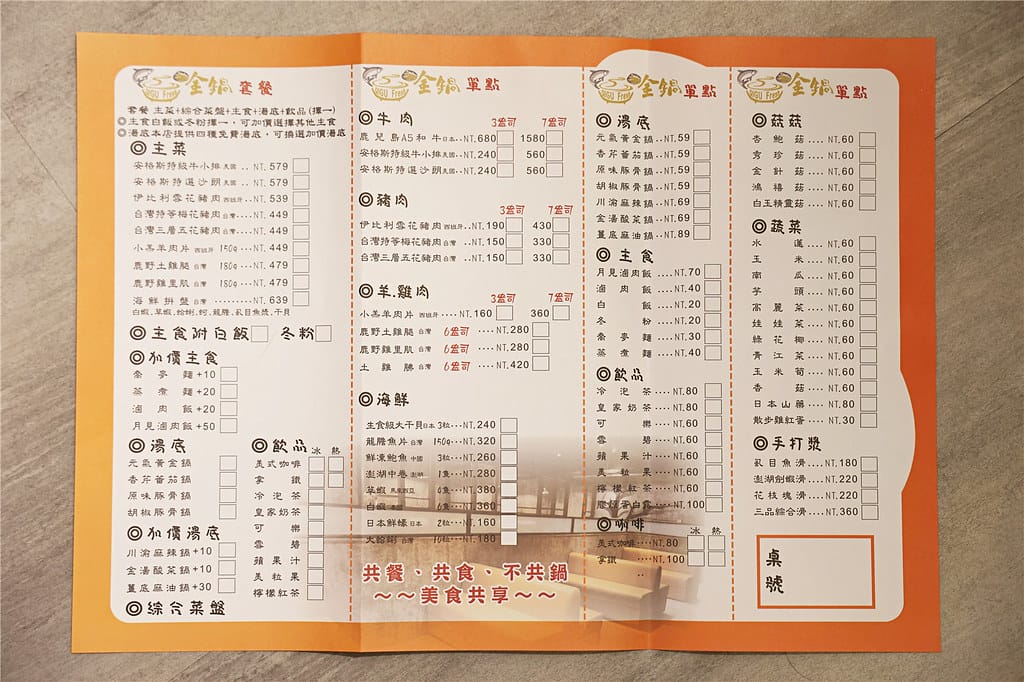 金鍋 套餐
套餐 主菜+綜合菜盤+主食+湯底+飲品(擇一)
◎主食白飯或冬粉擇一,可加價選擇其他主食
◎湯底本店提供四種免費湯底,可換選加價湯底
◎主菜
安格斯特級牛小排 美國 ‥NT.579
安格斯特選沙朗 美國 ‥NT.579
伊比利雪花豬肉 西班牙 ‥NT.539
台灣特等梅花豬肉 台灣 ‥‥NT.449
台灣三層五花豬肉 台灣 ‥‥NT.449
小羔羊肉片 西班牙 150g ‥‥NT.449
鹿野土雞腿 台灣 180g ‥‥NT.479
鹿野雞里肌 台灣 180g ‥‥NT.479
海鮮拼盤 台灣 ‥‥‥‥NT.639
白蝦、草蝦、蛤蜊、蚵、龍膽、虱目魚漿、干貝
◎主食附白飯 冬粉
◎加價主食
喬麥麵+10
蒸煮麵+20
滷肉飯+20
月見滷肉飯+50
◎湯底
元氣黃金鍋
香芹蕃茄鍋
原味豚骨鍋
胡椒豚骨鍋
◎加價湯底
川渝麻辣鍋+10
金湯酸菜鍋+10
薑底麻油鍋+30
◎綜合菜盤
◎飲品 冰 熱
美式咖啡
拿鐵
冷泡茶
皇家奶茶
可樂
雪碧
蘋果汁
美粒果
檸檬紅茶
金鍋 單點
◎牛肉 3盎司 7盎司
鹿兒島A5和牛 日本‥NT.680 1580
安格斯特級牛小排 美國‥NT.240 560
安格斯特選沙朗 美國‥NT.240 560
◎豬肉 3盎司 7盎司
伊比利雪花豬肉 西班牙‥NT.190 430
台灣特等梅花豬肉 台灣‥NT.150 330
台灣三層五花豬肉 台灣‥NT.150 330
◎羊.雞肉 3盎司 7盎司
小羔羊肉片 西班牙‥‥NT.160 360
鹿野土雞腿 台灣 6盎司‥‥NT.280
鹿野雞里肌 台灣 6盎司‥‥NT.280
土雞胇 台灣 6盎司‥‥NT.420
◎海鮮
生食級大干貝 日本 3粒‥‥NT.240
龍膽魚片 台灣 150g‥‥NT.320
鮮凍鮑魚 中國 3粒‥‥NT.260
澎湖中卷 澎湖 1隻‥‥NT.280
草蝦 馬來西亞 6隻‥‥NT.380
白蝦 6隻‥‥NT.360
日本鮮蠔 日本 2粒‥‥NT.160
大蛤蜊 台灣 10粒‥‥NT.180
共餐、共食、不共鍋
~~美食共享~~
金鍋 單點
◎湯底
元氣黃金鍋‥NT.59
香芹蕃茄鍋‥NT.59
原味豚骨鍋‥NT.59
胡椒豚骨鍋‥NT.59
川渝麻辣鍋‥NT.69
金湯酸菜鍋‥NT.69
薑底麻油鍋‥NT.89
◎主食
月見滷肉飯‥NT.70
滷肉飯‥NT.40
白飯‥NT.20
冬粉‥NT.20
喬麥麵‥NT.30
蒸煮麵‥NT.40
◎飲品
冷泡茶‥NT.80
皇家奶茶‥NT.80
可樂‥NT.60
雪碧‥NT.60
蘋果汁‥NT.60
美粒果‥NT.60
檸檬紅茶‥NT.60
膠原蛋白露‥NT.100
◎咖啡 冰 熱
美式咖啡‥‥NT.80
拿鐵‥‥NT.100
金鍋 單點
◎菇菇
杏鮑菇‥‥NT.60
秀珍菇‥‥NT.60
金針菇‥‥NT.60
鴻禧菇‥‥NT.60
白玉精靈菇‥‥NT.60
◎蔬菜
水蓮‥‥NT.60
玉米‥‥NT.60
南瓜‥‥NT.60
芋頭‥‥NT.60
高麗菜‥‥NT.60
娃娃菜‥‥NT.60
綠花椰‥‥NT.60
青江菜‥‥NT.60
玉米筍‥‥NT.60
香菇‥‥NT.60
日本山藥‥‥NT.80
散步雞紅蛋‥‥NT.30
◎手打漿
虱目魚滑‥‥NT.180
澎湖劍蝦滑‥‥NT.220
花枝塊滑‥‥NT.220
三品綜合滑‥‥NT.360
桌號